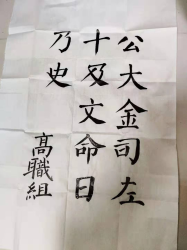 公大金司左
十及文命日
乃史
髙職組